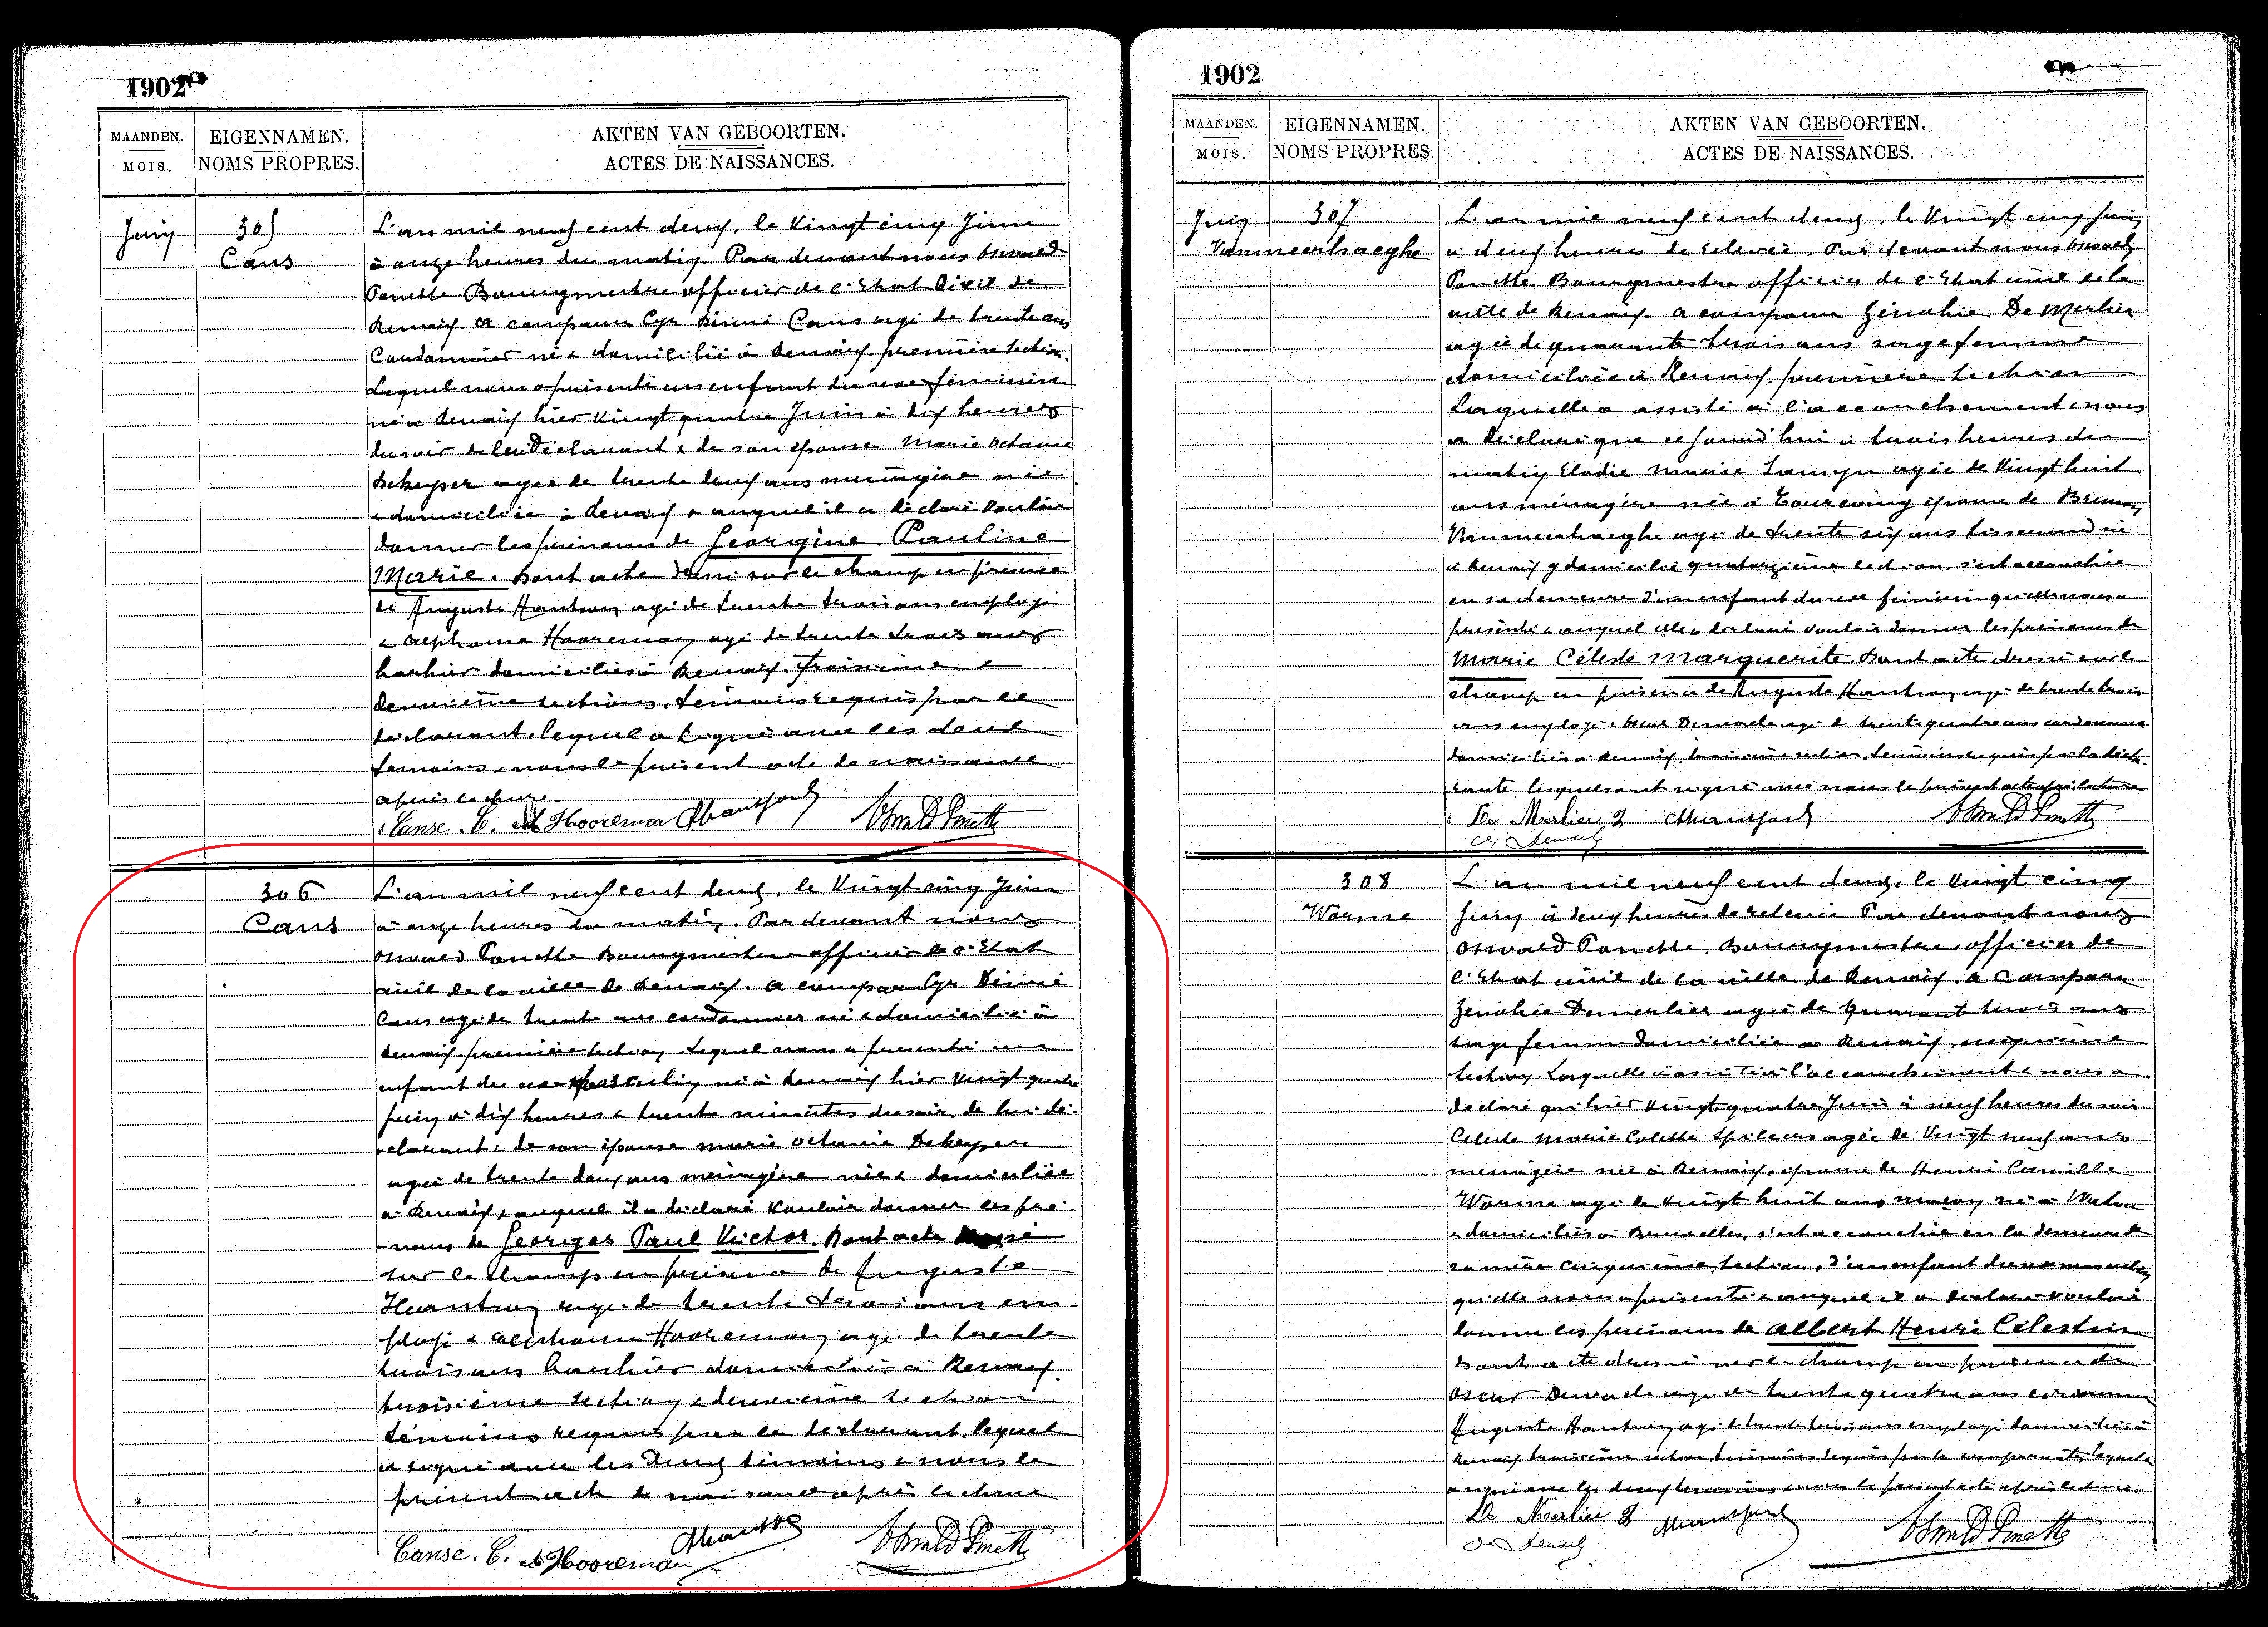 1902
MAANDEN.
MOIS.
EIGENNAMEN.
NOMS PROPRES.
AKTEN VAN GEBOORTEN.
ACTES DE NAISSANCES.
Juin
305
Cans
L'an mil neuf cent deux, le Vingt cinq Juin
à onze heures du matin. Par devant nous Oswald
Ponette Bourgmestre officier de l'Etat Civil de
Renaix a comparu Cyr Désiré Cans agé de trente ans
Cordonnier né & domicilié à Renaix première section.
Lequel nous a présenté un enfant du sexe féminin
né à Renaix hier Vingt quatre Juin à dix heures
du soir de lui Déclarant & de son épouse Marie Octavie
Dekeyser agée de trente deux ans ménagère née
& domiciliée à Renaix & auquel il a déclaré vouloir
donner les prénoms de Georgine Pauline
Marie. Dont acte dressé sur le champ en présence
de Auguste Hantson agé de trente trois ans employé
& Alphonse Hooreman agé de trente trois ans
barbier domiciliés à Renaix troisième &
deuxième sections, témoins requis par le
déclarant, lequel a signé avec les deux
témoins & nous le présent acte de naissance
après lecture
Canse. C. A Hooreman AHantson Oswald Ponette
306
Cans
L'an mil neuf cent deux, le Vingt cinq Juin
à onze heures du matin. Par devant nous
Oswald Ponette Bourgmestre officier de l'Etat
civil de la ville de Renaix. a comparu Cyr Désiré
Cans agé de trente ans cordonnier né & domicilié à
Renaix première section. Lequel nous a présenté un
enfant du sexe masculin né à Renaix hier Vingt quatre
juin à dix heures & trente minutes du soir, de lui dé-
clarant & de son épouse Marie Octavie Dekeyser
agée de trente deux ans ménagère née & domiciliée
à Renaix & auquel il a déclaré vouloir donner les pré-
noms de Georges Paul Victor. Dont acte dressé
sur le champ en présence de Auguste
Hantson agé de trente trois ans em-
ployé & Alphonse Hooreman agé de trente
trois ans barbier domiciliés à Renaix
troisième section & deuxième section
témoins requis par le déclarant, lequel
a signé avec les deux témoins & nous le
présent acte de naissance après lecture
Canse. C. A Hooreman AHantson Oswald Ponette
1902
MAANDEN.
MOIS.
EIGENNAMEN.
NOMS PROPRES.
AKTEN VAN GEBOORTEN.
ACTES DE NAISSANCES.
Juin
307
Vanmeerhaeghe
L'an mil neuf cent deux, le Vingt cinq Juin
à deux heures de relevée. Par devant nous Oswald
Ponette. Bourgmestre officier de l'Etat civil de la
ville de Renaix. a comparu Zénobie De Merlier
agée de quarante trois ans sage femme
domiciliée à Renaix, première section
Laquelle a assisté à l'accouchement & nous
a déclaré que ce jourd'hui à trois heures du
matin Elodie Marie agée de Vingt huit
ans ménagère née à Tourcoing épouse de Bruno
Vanmeerhaeghe agé de trente six ans tisserand né
à Renaix y domicilié quatorzième section, s'est accouchée
en sa demeure d'un enfant du sexe féminin qu'elle nous a
présenté & auquel elle a déclaré vouloir donner les prénoms de
Marie Céleste Marguerite. Dont acte dressé sur le
champ en présence de Auguste Hantson agé de trente trois
ans employé & Oscar agé de trente quatre ans cordonnier
domiciliés à Renaix, troisième section, témoins requis par la décla-
rante, lesquels ont signé avec nous le présent acte après lecture
De Merlier Z AHantson Oswald Ponette
308
Worme
L'an mil neuf cent deux, le Vingt cinq
Juin à deux heures de relevée Par devant nous
Oswald Ponette. Bourgmestre. officier de
l'Etat civil de la ville de Renaix. a comparu
Zénobie Demerlier agée de quarante trois ans
sage femme domiciliée à Renaix,
section. Laquelle a assisté à l'accouchement & nous a
déclaré qu'hier Vingt quatre Juin à neuf heures du soir
Céleste Marie Colette agée de Vingt neuf ans
ménagère née à Renaix, épouse de Henri Camille
Worme agé de Vingt huit ans maçon né à
& domicilié à Bruxelles, s'est accouchée en la demeure de
sa mère cinquième section, d'un enfant du sexe masculin
qu'elle nous a présenté & auquel il a déclaré vouloir
donner les prénoms de Albert Henri Célestin
Dont acte dressé sur le champ en présence de
Oscar agé de trente quatre ans cordonnier
Auguste Hantson agé de trente trois ans employé domiciliés à
Renaix troisième section, témoins requis par la comparante, laquelle
a signé avec les deux témoins & nous le présent acte après lecture.
De Merlier Z AHantson Oswald Ponette